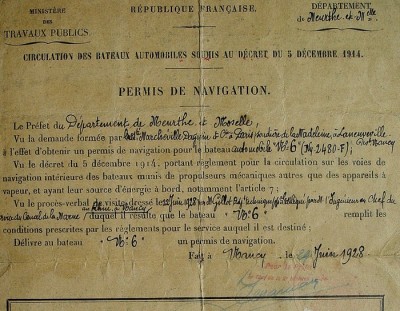 MINISTÈRE
DES
TRAVAUX PUBLICS
RÉPUBLIQUE FRANÇAISE.
DÉPARTEMENT
de Meurthe et Mselle
CIRCULATION DES BATEAUX AUTOMOBILES SOUMIS AU DÉCRET DU 5 DÉCEMBRE 1914.
PERMIS DE NAVIGATION.
Le Préfet du Département de Meurthe et Moselle,
Vu la demande formée par Marcheville Daguin & Cie à Paris de la Madeleine, à Laneuveville
à l'effet d'obtenir un permis de navigation pour le bateau automobile "No 6" (Ny 2480-F); près Nancy
Vu le décret du 5 décembre 1914, portant règlement pour la circulation sur les voies de
navigation intérieure des bateaux munis de propulseurs mécaniques autres que des appareils à
vapeur, et ayant leur source d'énergie à bord, notamment l'article 7;
Vu le procès-verbal de visite dressé le 22 Juin 1928 par Mr Ingénieur en Chef du
Canal de la Marne au Rhin à Nancy duquel il résulte que le bateau "No 6" remplit les
conditions prescrites par les règlements pour le service auquel il est destiné;
Délivre au bateau "No 6" un permis de navigation.
Fait à Nancy, le Juin 1928